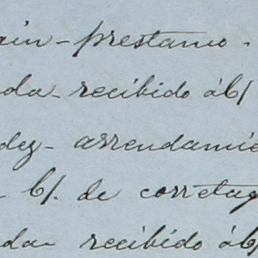 ain - prestamo -
da - recibido á b/
dez - arrendamie
b/. de corretag
da - recibido á b/